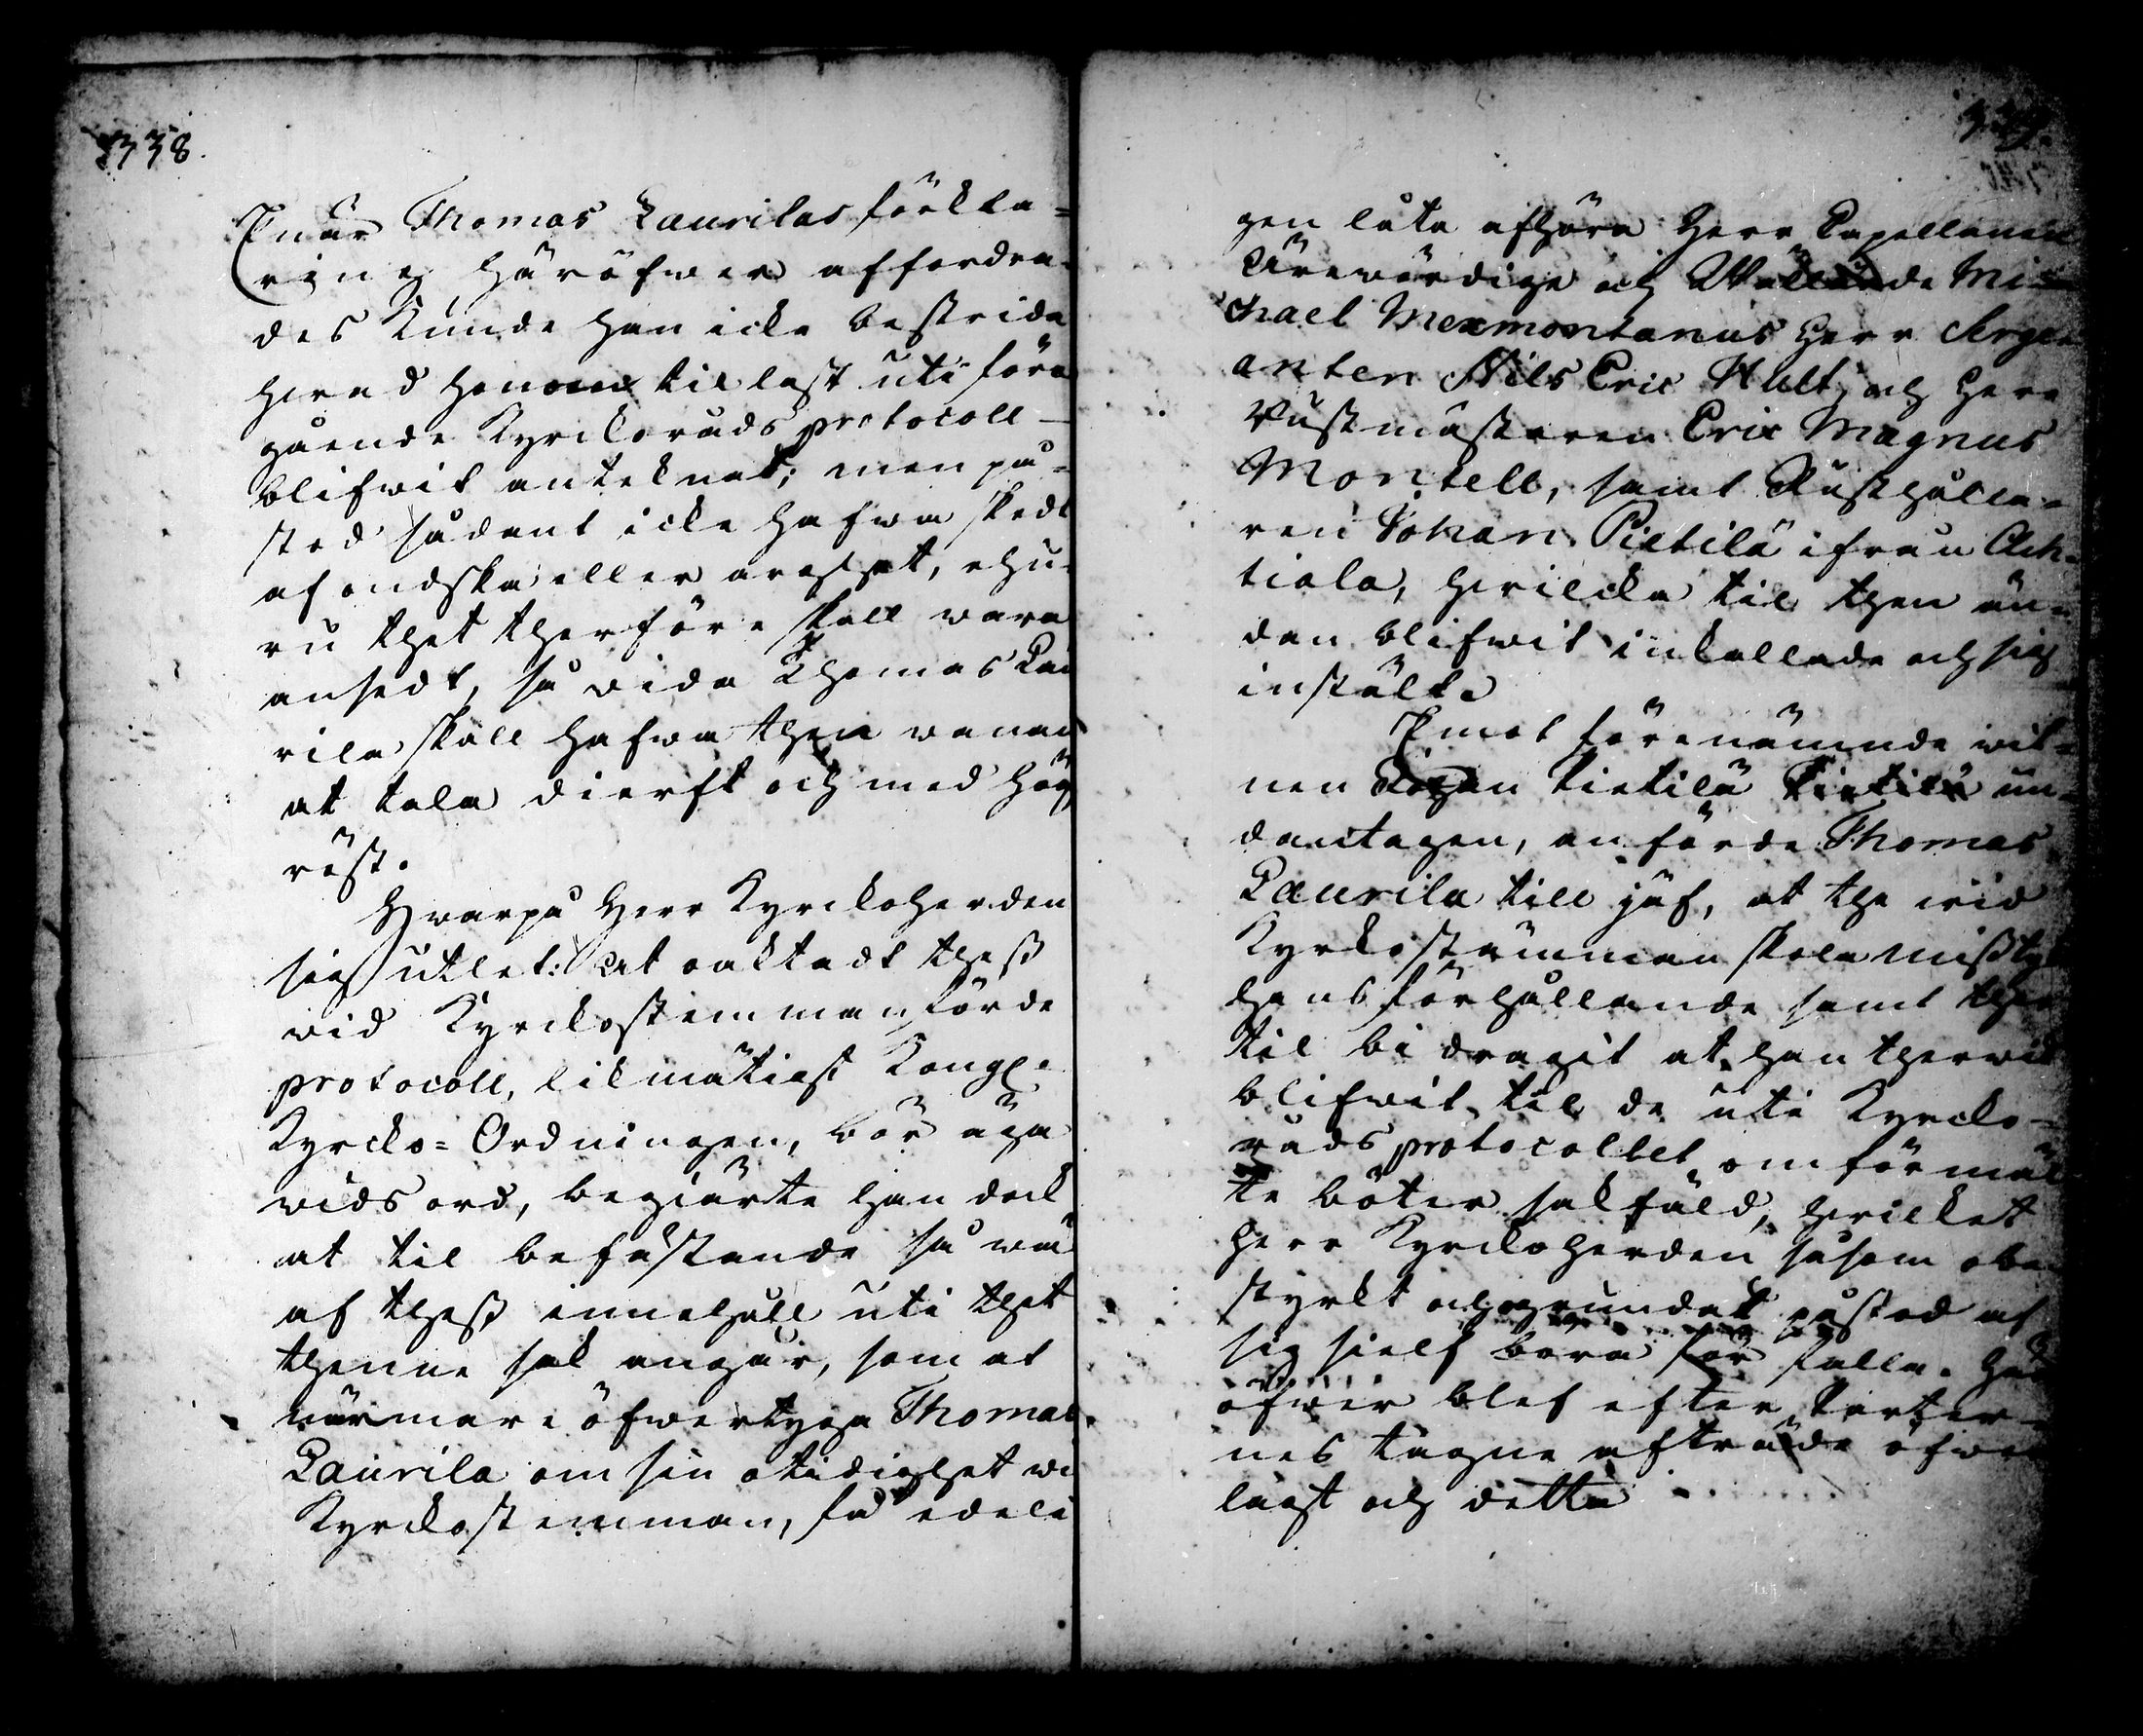 338.
När Thomas Laurilas förkla=
ring häröfwer affordra-
des kunde han icke bestrida
hwad honom til last uti före
gående Kyrckoråds protocoll
blifwit anteknat; men på-
stod sådant icke hafwa skedt
af ondska eller arghet, ehu-
ru thet therföre skall wara
ansedt, så vida Thomas Lau
rila skall hafwa then wanan
at tala dierft och med hög
röst.
Hwarpå Herr Kyrckoherden
sig utlet: at oaktadt thess
vid Kyrckostemman förde
protocoll, likmätigt Kongl.
Kyrcko=Ordningen, bör äga
vidsord, begiärte han dock
at til befästande så wäl
af thess innehåll uti thet
thenne sak angår, som at
närmare öfwertyga Thomas
Laurila om sin otidighet wi
Kyrckostemman, få edeli
339.
gen låta afhöra Herr Capellanen
Ärewördige och Wällärde Mi=
chael Mexmontanus Herr Serge
anten Nils Eric Hult, och Herr
Rustmästaren Eric Magnus
Montell, samt Rusthålla-
ren Johan Pietilä ifrån Ach-
tiala, hwilcka til then än-
dan blifwit inkallade och sig
instält.
Emot förenämnde wit-
nen Johan Pietilä un-
dantagen, anförde Thomas
Laurila till jäf, at the wid
Kyrkostämman skola misstyckt
hans förhållande samt ther
til bidragit at han therwid
blifwit til de uti Kyrcko-
råds protocollet omförmäl
te böter sakfäld, hwilket
Herr Kyrckoherden såsom obe
styrkt och ogrundat påstod af
sig sielf böra förfalla. Här
öfwer blef efter Parter-
nes tagne afträde öfwer
lagt och detta